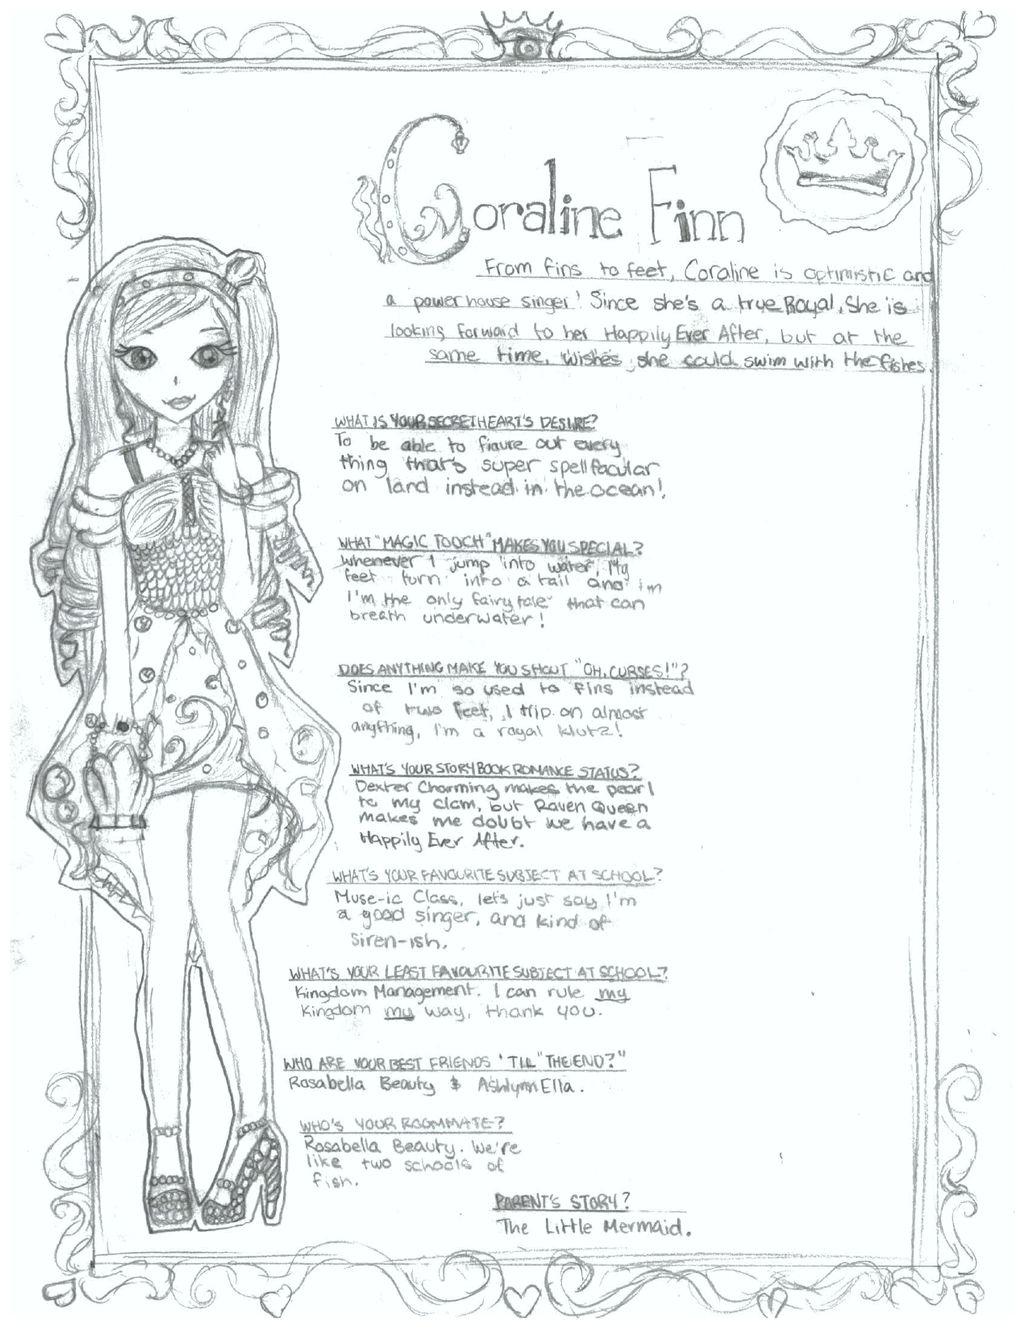 Coraline Finn
From fins to feet, Coraline is optimistic and
a powerhouse singer! Since she's a true Royal, She is
looking forward to her Happily Ever After, but at the
same time, wishes she could swim with the fishes.
WHAT IS YOUR SECRET HEART'S DESIRE?
To be able to figure out every
thing that's super spellfacular
on land instead in the ocean!
WHAT "MAGIC TOUCH" MAKES YOU SPECIAL?
Whenever I jump into water, My
feet turn into a tail and im
I'm the only fairytale that can
breath underwater!
DOES ANYTHING MAKE YOU SHOUT "OH, CURSES!"?
Since I'm so used to fins instead
of two feet, I trip on almost
anything, I'm a royal klutz!
WHAT'S YOUR STORYBOOK ROMANCE STATUS?
Dexter Charming makes the pearl
to my clam, but Raven Queen
makes me doubt we have a
Happily Ever After.
WHAT'S YOUR FAVOURITE SUBJECT AT SCHOOL?
Muse-ic Class, let's just say I'm
a good singer, and kind of
siren-ish.
WHAT'S YOUR LEAST FAVOURITE SUBJECT AT SCHOOL?
Kingdom Management. I can rule my
Kingdom my way, thank you.
WHO ARE YOUR BEST FRIENDS 'TIL "THE END?"
Rosabella Beauty & Ashlynn Ella.
WHO'S YOUR ROOMMATE?
Rosabella Beauty. We're
like two schools of
fish.
PARENT'S STORY?
The Little Mermaid.